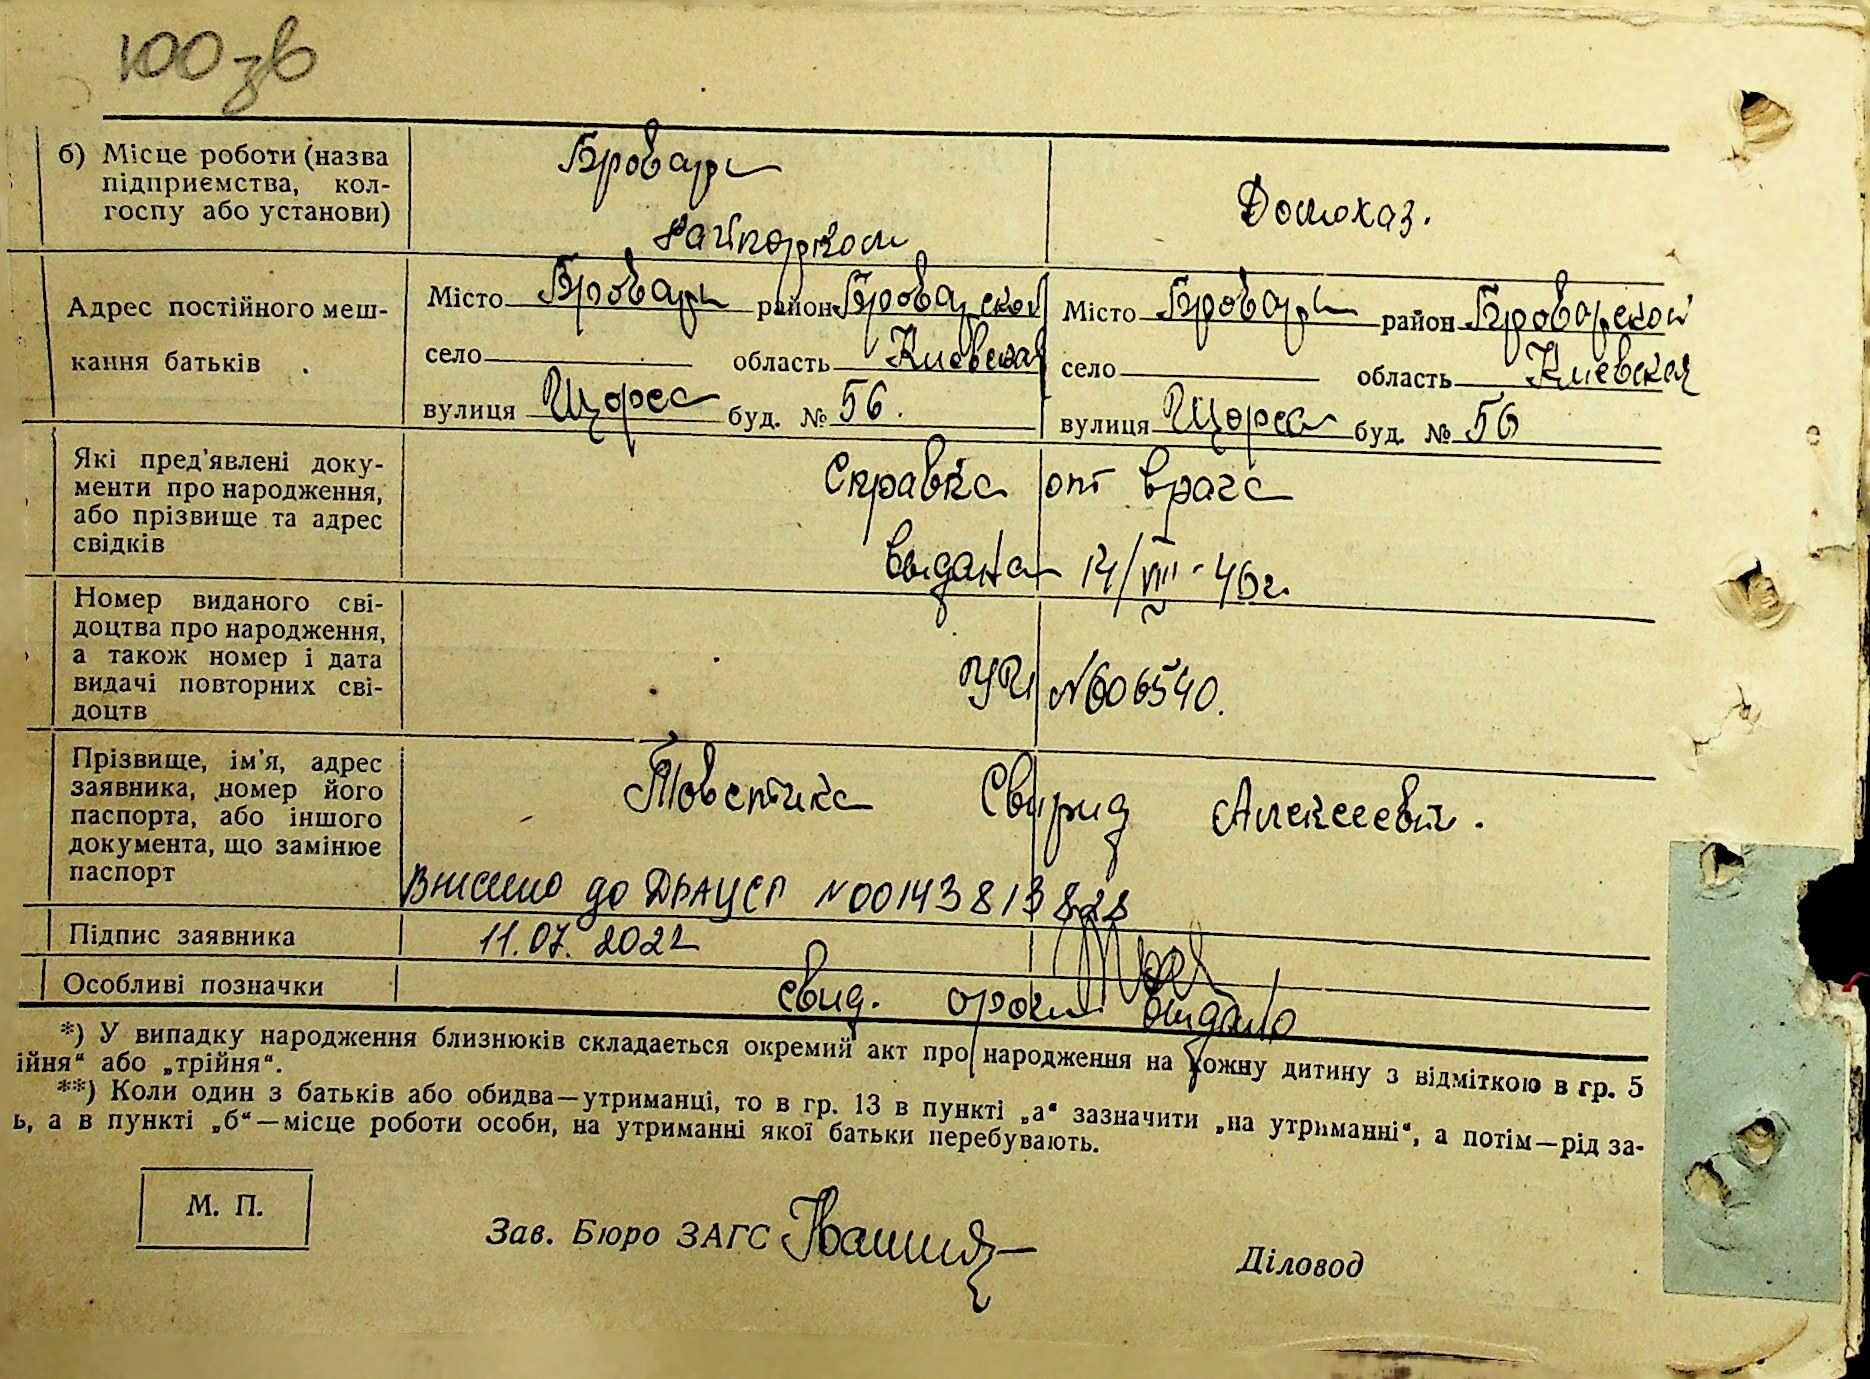 100 зв
б) Місце роботи (назва
підприємства, кол-
госпу або установи)
Бровары
райпарком
Домохаз.
Адрес постійного меш-
кання батьків
Місто Бровары район Броварской
село область Киевская
вулиця Щорса буд. № 56.
Місто Бровары район Броварской
село область Киевская
вулиця Щорса буд. № 56
Які пред'явлені доку-
менти про народження,
або прізвище та адрес
свідків
Справка от врача
выдана 14/VIII-46г.
Номер виданого сві-
доцтва про народження,
а також номер і дата
видачі повторних сві-
доцтв
№606540.
Прізвище, ім'я, адрес
заявника, номер його
паспорта, або іншого
документа, що замінює
паспорт
Товстика Свирид Алексеевич.
Внесено до ДРАЦСГ №00143813828
Підпис заявника
11.07.2022
Особливі позначки
свид. выдано
*) У випадку народження близнюків складається окремий акт про народження на кожну дитину з відміткою в гр. 5
ійня" або „трійня".
**) Коли один з батьків або обидва—утриманці, то в гр. 13 в пункті „а" зазначити „на утриманні", а потім—рід за-
ь, а в пункті „б"—місце роботи особи, на утриманні якої батьки перебувають.
М. П.
Зав. Бюро ЗАГС
Діловод